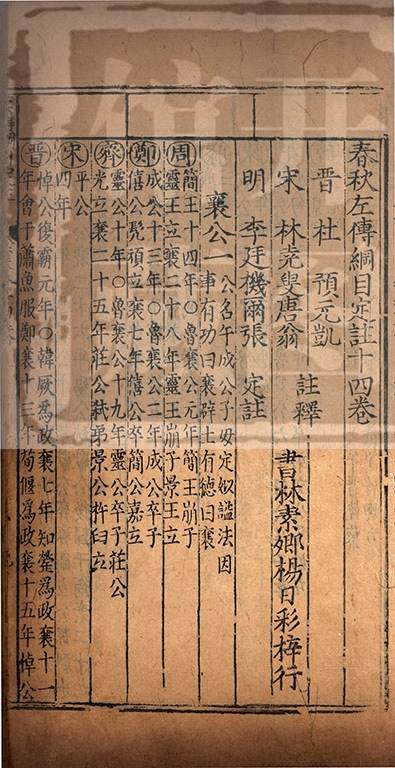 春秋左傳綱目定註十四卷
晉 杜 預元凱
宋 林堯叟唐翁 註釋
明 李廷機爾張 定註
書林素鄉楊日彩梓行
襄公一
公名午成公子母定姒謚法因
事有功曰襄辟土有德曰襄
周
簡王十四年〇魯襄公元年簡王崩子
靈王立襄二十八年靈王崩子景王立
鄭
成公十三年〇魯襄公二年成公卒子
僖公髡頑立襄七年僖公卒簡公嘉立
齊
靈公十年〇魯襄公十九年靈公卒子莊公
光立襄二十五年莊公弒弟景公杵臼立
宋
平公
四年
晉
悼公復霸元年〇韓厥為政襄七年知罃為政襄十一
年會于蕭魚服鄭襄十三年荀偃為政襄十五年悼公